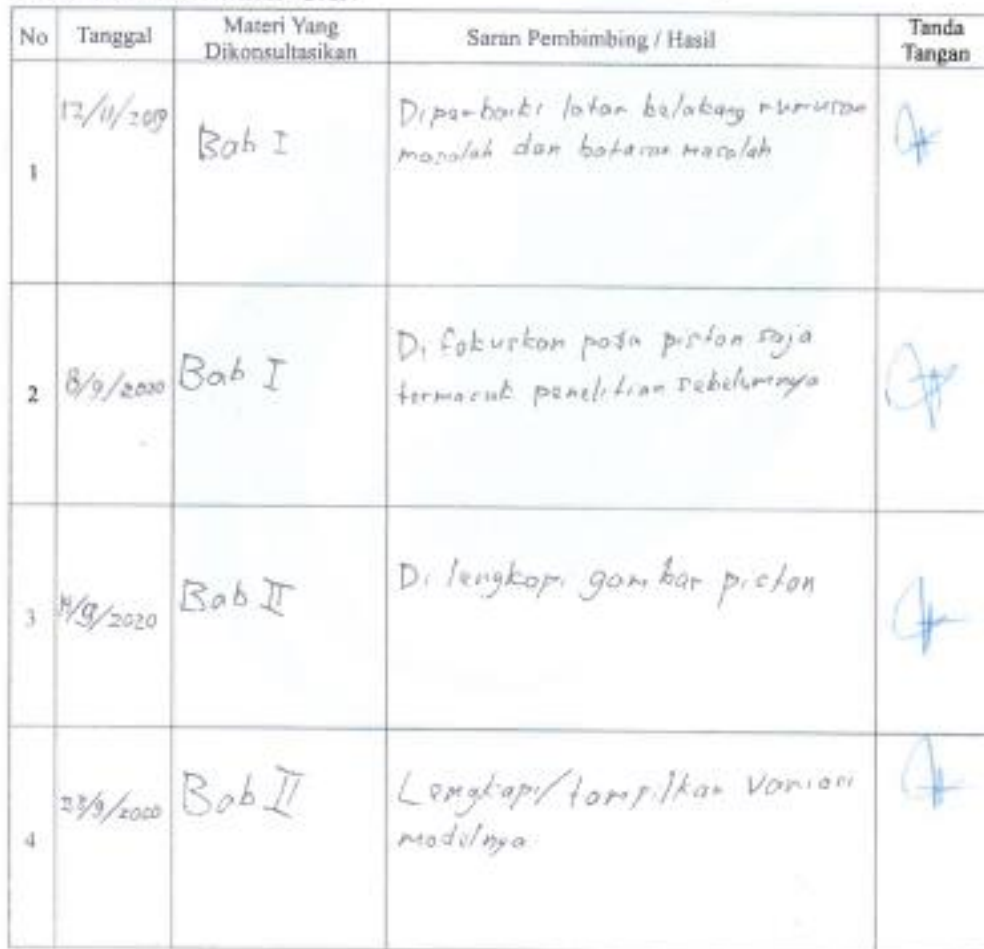 No Tanggal Materi Yang Dikonsultasikan Saran Pembimbing / Hasil Tanda Tangan
1 12/11/2019 Bab I Diperbaiki latar belakang rumusan
masalah dan batasan masalah
2 8/9/2020 Bab I Di fokuskan pada piston saja
termasuk penelitian sebelumnya
3 /9/2020 Bab II Di lengkapi gambar piston
4 23/9/2020 Bab II Lengkapi/tampilkan Variasi
modelnya